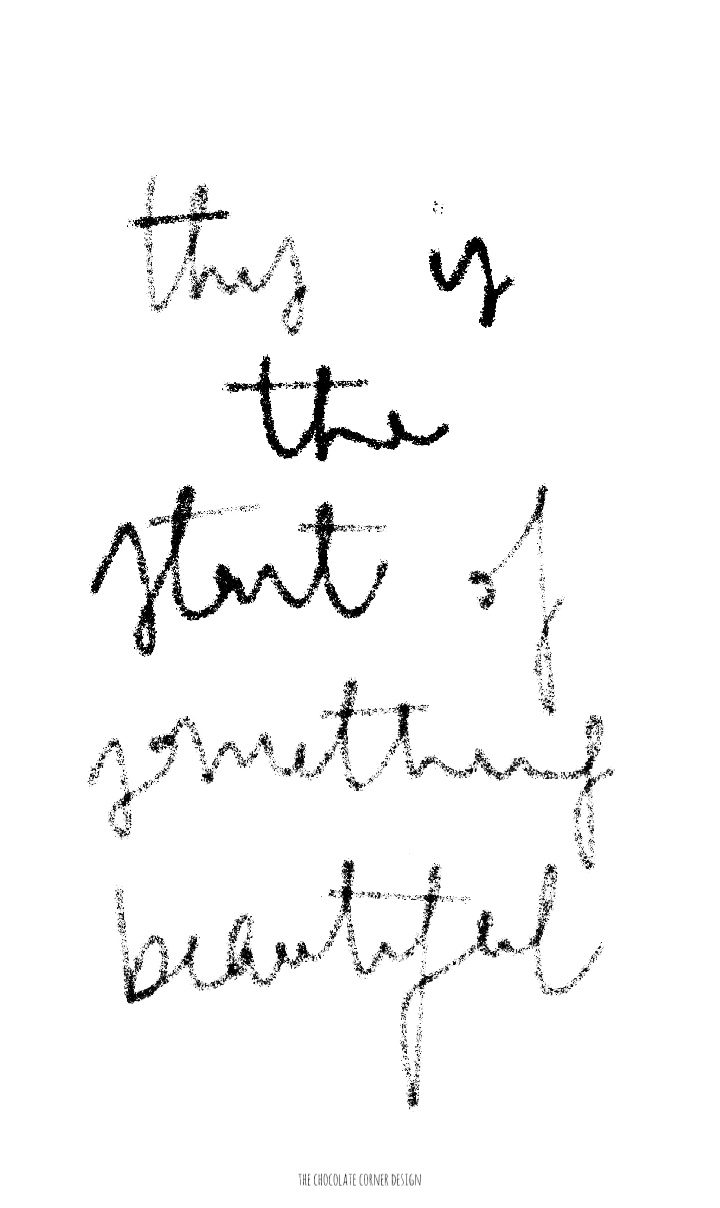 this is
the
start of
something
beautiful
THE CHOCOLATE CORNER DESIGN